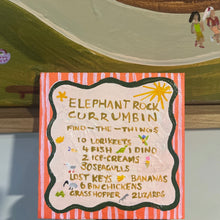 ELEPHANT ROCK
CURRUMBIN
FIND-THE-THINGS
10 LORIKEETS
4 FISH 1 DINO
2 ICE-CREAMS
30 SEAGULLS
LOST KEYS BANANAS
6 BIN CHICKENS
GRASSHOPPER - 2 LIZARDS